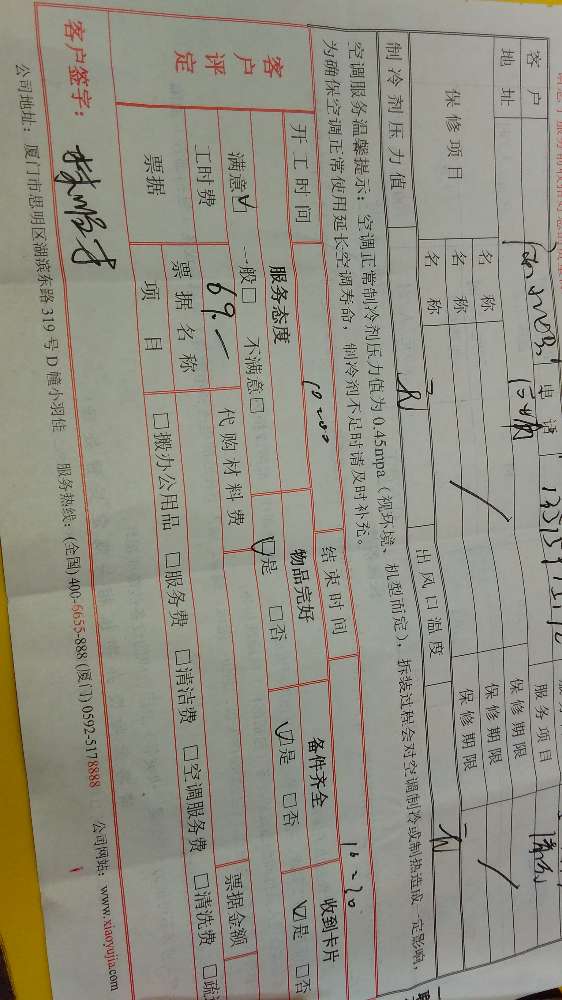 客户 电话 服务项目
地址
保修项目 名称 保修期限
名称 保修期限
名称 保修期限
制冷剂压力值 出风口温度
空调服务温馨提示：空调正常制冷剂压力值为0.45mpa（视环境、机型而定），拆装过程会对空调制冷或制热造成一定影响，
为确保空调正常使用延长空调寿命，制冷剂不足时请及时补充。
开工时间 10:00 结束时间 10:20
客户评定 服务态度 物品完好 备件齐全 收到卡片
满意☑ 一般□ 不满意□ ☑是 □否 ☑是 □否 ☑是 □否
工时费 69.- 代购材料费
票据 票据名称 票据金额
项目 □搬办公用品 □服务费 □清洁费 □空调服务费 □清洗费
客户签字：
公司地址：厦门市思明区湖滨东路319号D幢小羽佳 服务热线：(全国)400-6655-888 (厦门)0592-5178888 公司网站：www.xiaoyujia.com